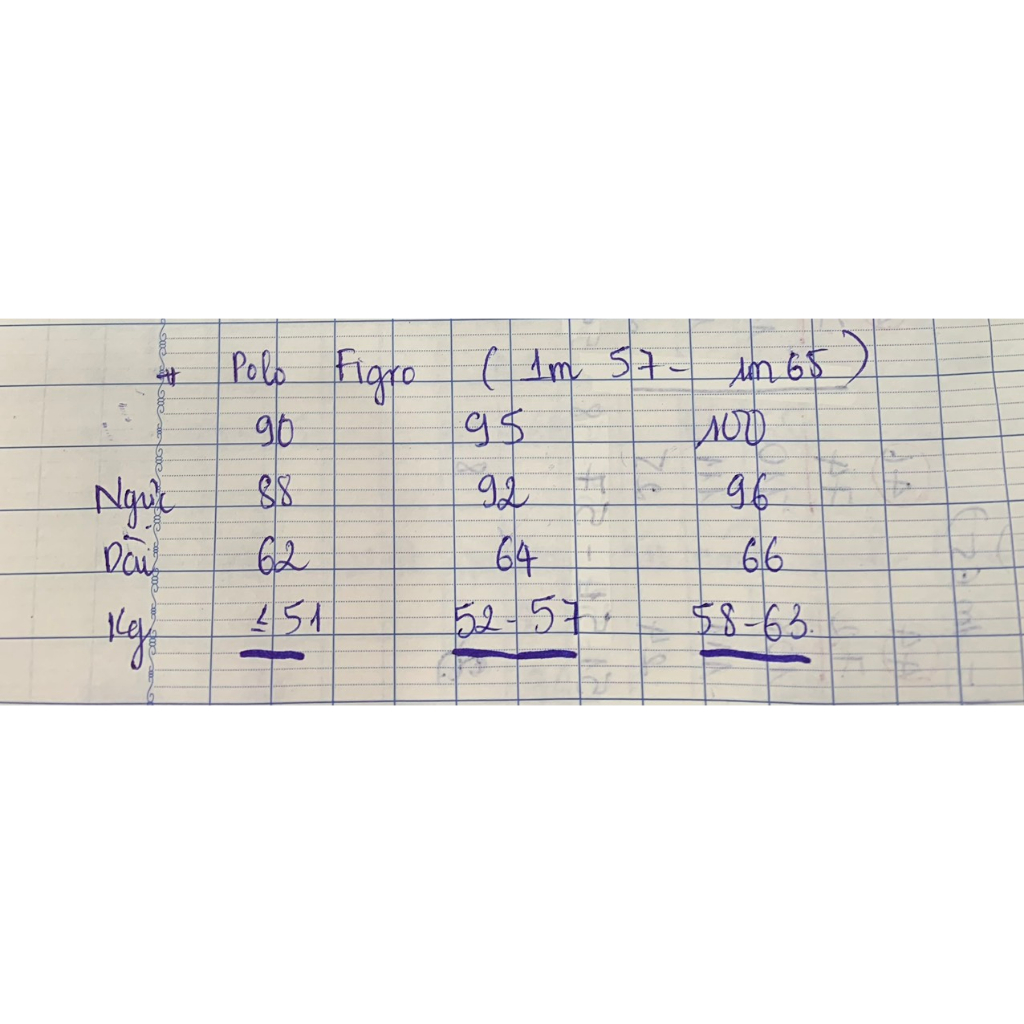 # Polo Figro ( 1m 57 - 1m 65 )
90 95 100
Ngực 88 92 96
Dài 62 64 66
Kg ≤ 51 52 - 57 58 - 63.